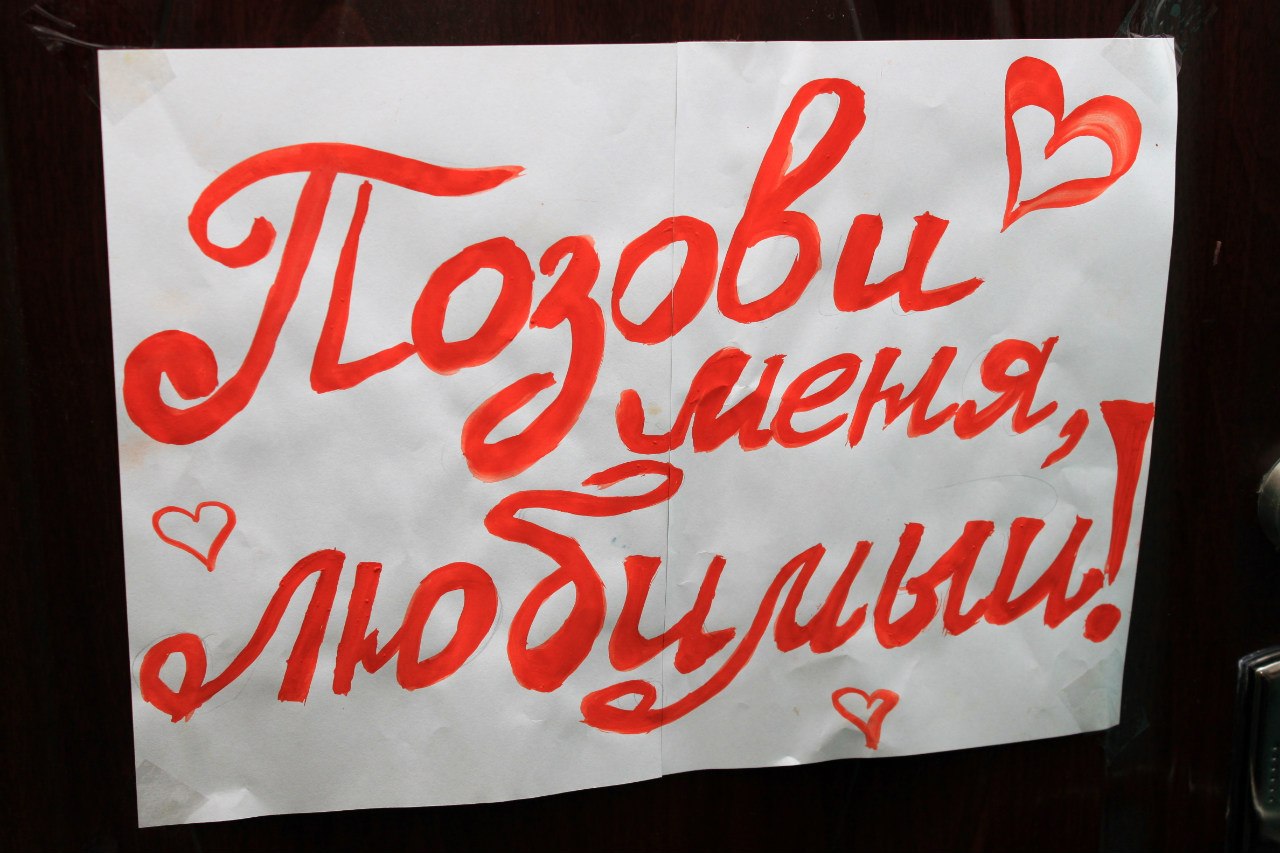 Позови
меня,
любимый!